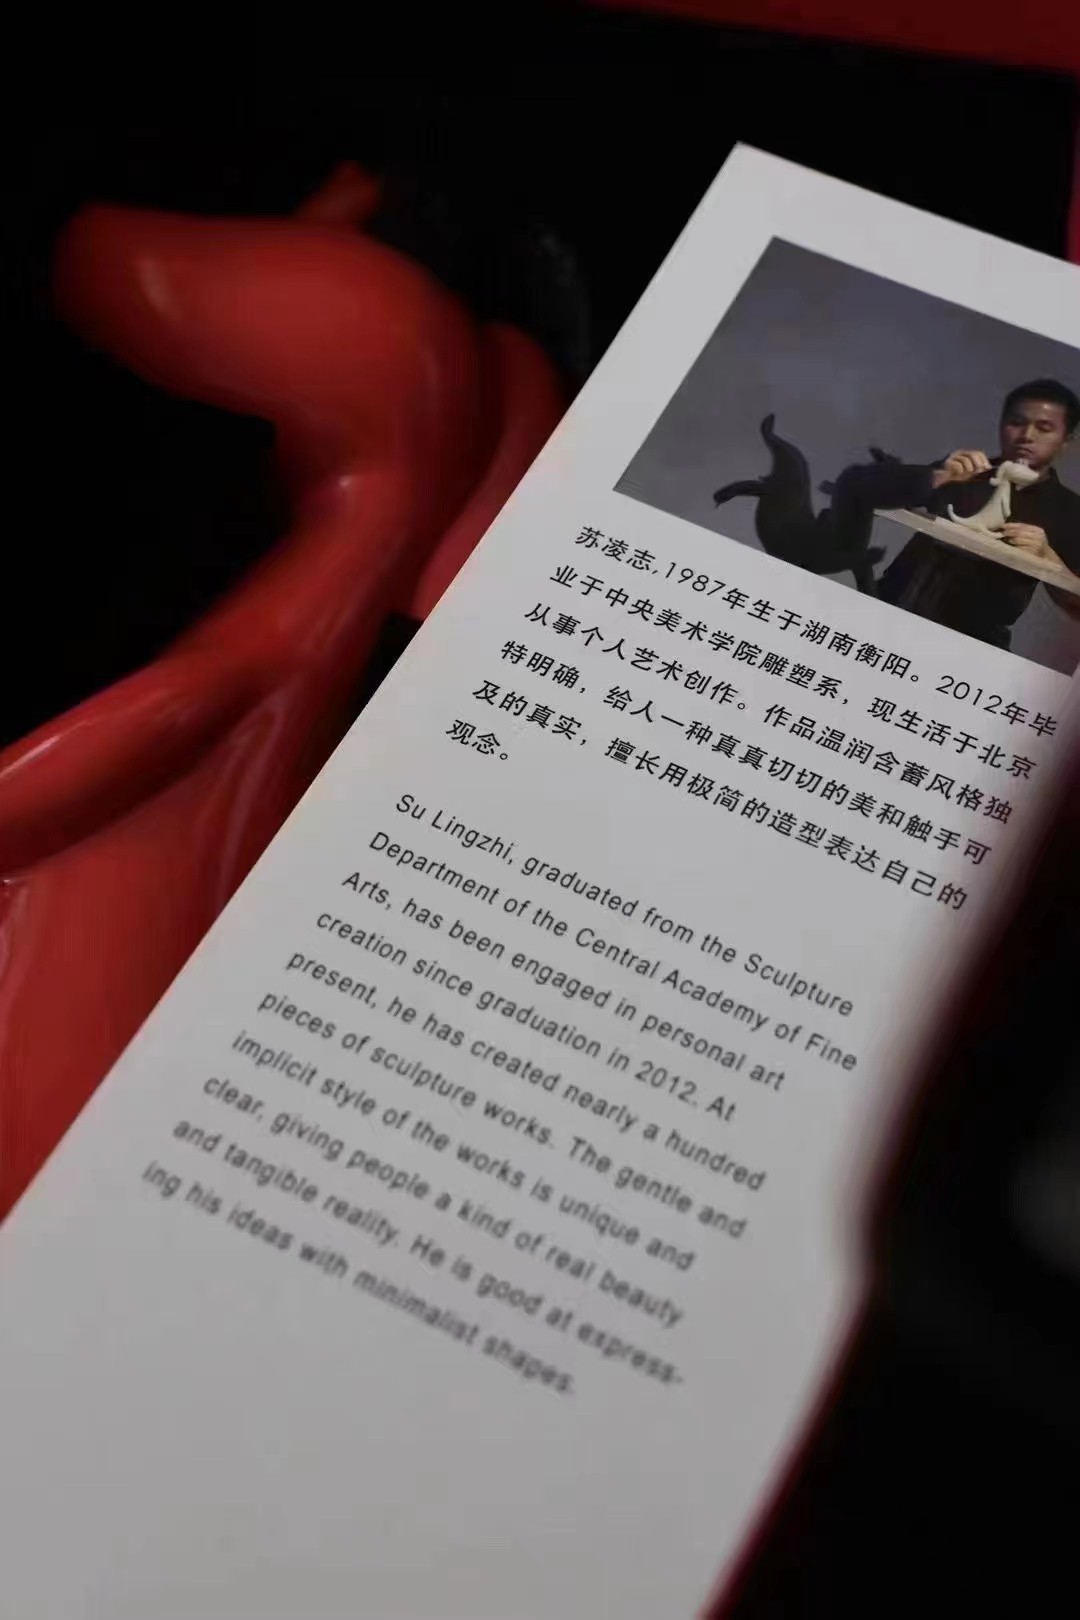 苏凌志,1987年生于湖南衡阳。2012年毕
业于中央美术学院雕塑系，现生活于北京
从事个人艺术创作。作品温润含蓄风格独
特明确，给人一种真真切切的美和触手可
及的真实，擅长用极简的造型表达自己的
观念。
Su Lingzhi, graduated from the Sculpture
Department of the Central Academy of Fine
Arts, has been engaged in personal art
creation since graduation in 2012. At
present, he has created nearly a hundred
pieces of sculpture works. The gentle and
implicit style of the works is unique and
clear, giving people a kind of real beauty
and tangible reality. He is good at espress-
ing his ideas with minimalist shapes.